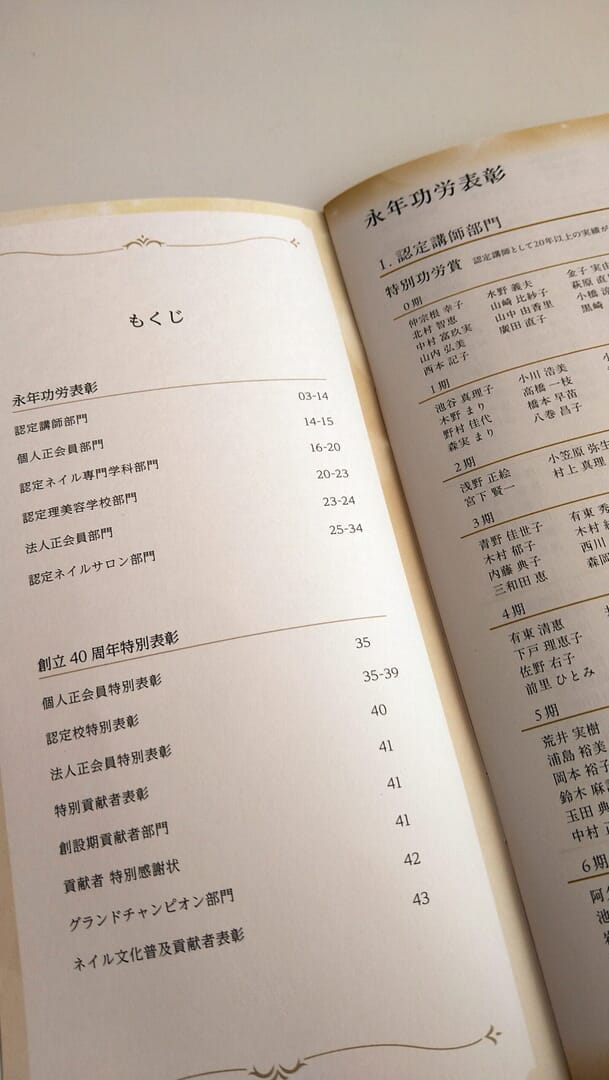 もくじ
永年功労表彰
認定講師部門 03-14
個人正会員部門 14-15
認定ネイル専門学科部門 16-20
認定理美容学校部門 20-23
法人正会員部門 23-24
認定ネイルサロン部門 25-34
創立40周年特別表彰
個人正会員特別表彰 35
認定校特別表彰 35-39
法人正会員特別表彰 40
特別貢献者表彰 41
創設期貢献者部門 41
貢献者 特別感謝状 41
グランドチャンピオン部門 42
ネイル文化普及貢献者表彰 43
永年功労表彰
1. 認定講師部門
特別功労賞 認定講師として20年以上の実績が
0期
仲宗根 幸子 水野 義夫 金子 実由
北村 智恵 山崎 比紗子 萩原 直
中村 富玖実 山中 由香里 小橋
山内 弘美 廣田 直子 黒崎
西本 記子
1期
池谷 真理子 小川 浩美
木野 まり 高橋 一枝
野村 佳代 橋本 早苗
森実 まり 八巻 昌子
2期
浅野 正絵 小笠原 弥生
宮下 賢一 村上 真理
3期
青野 佳世子 有東 秀
木村 郁子 木村
内藤 典子 西川
三和田 恵 森岡
4期
有東 清恵
下戸 理恵子
佐野 右子
前里 ひとみ
5期
荒井 実樹
浦島 裕美
岡本 裕子
鈴木 麻
玉田 典
中村
6期
阿
池